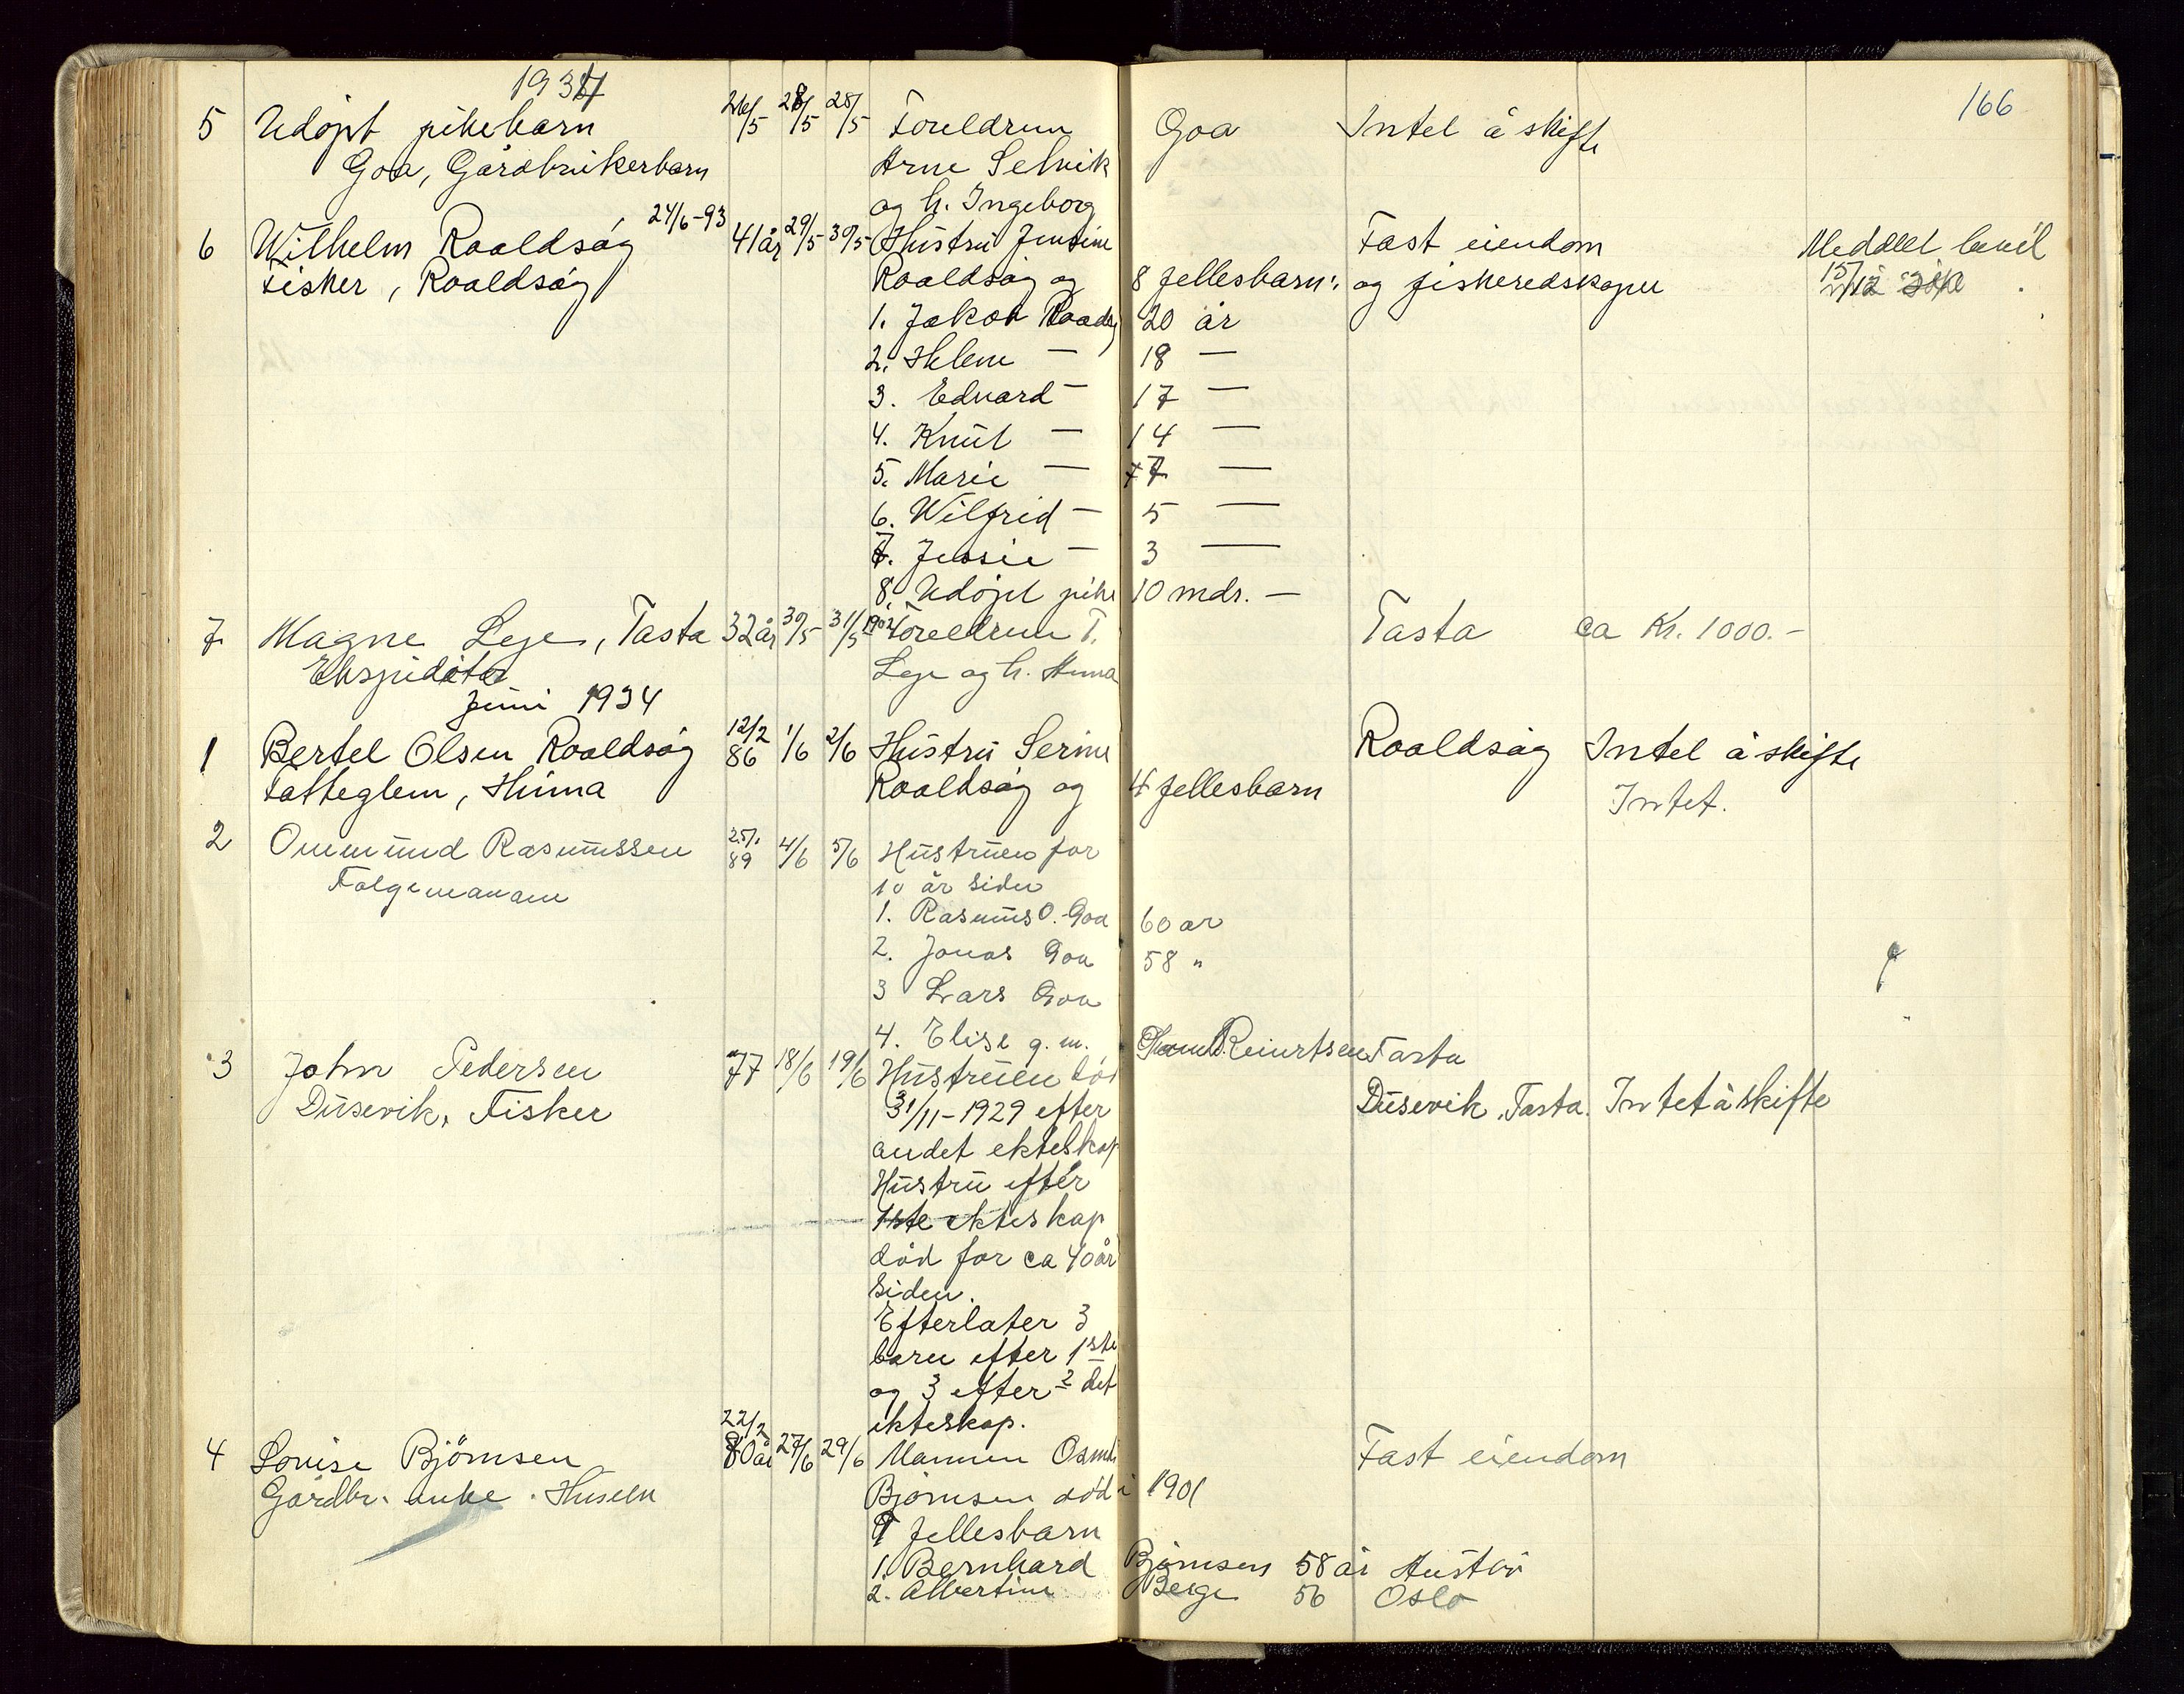 1934
166
5 Udöpt pikebarn 26/5 28/5 28/5 Foreldrene Goa Intet å skifte
Goa, Gårdbrukerbarn Arne Selvik
og h. Ingeborg
6 Wilhelm Roaldsøy 24/6-93 41 år 29/5 30/5 Hustru Jensine Fast eiendom Meddelt bevil
Fisker, Roaldsøy Roaldsøy og 8 fellesbarn: og fiskeredskaper 15/12
1. Jakob 20 år
2. Helene — 18 —
3. Edvard — 17 —
4. Knut — 14 —
5. Marie — 7 —
6. Wilfrid — 5 —
7. Jessie — 3 —
8. Udöpt pike 10 mdr. —
7 Magne Leje, Tasta 32 år 30/5 31/5 Foreldrene T. Tasta ca Kr. 1000.-
Ekspeditør Leje og h. Anna
Juni 1934
1 Bertel Olsen Roaldsøy 12/2 86 1/6 2/6 Hustru Serine Roaldsøy Intet å skifte
Fattiglem, Roaldsøy og 4 fellesbarn
Intet.
2 Ommund Rasmussen 25/1 89 4/6 5/6 Hustruen for
Følgemann 10 år siden
1. Rasmus O. Goa 60 år
2. Jonas Goa 58 "
3 Lars Goa
4. Elise g. m. Reiertsen Tasta
3 John Pedersen 77 18/6 19/6 Hustruen död
Dusevik, Fisker 31/11-1929 efter Dusevik, Tasta. Intet å skifte
andet ekteskap
Hustru efter
1ste ekteskap
död for ca 40 år
siden.
Efterlater 3
barn efter 1ste
og 3 efter 2 det
ekteskap.
4 Louise Björnsen 22/2 80 år 27/6 29/6 Mannen Fast eiendom
Gårdbr. enke. Husebø Björnsen död i 1901
9 fellesbarn
1. Bernhard Björnsen 58 år Austbø
2. Albertine Berge 56 Oslo